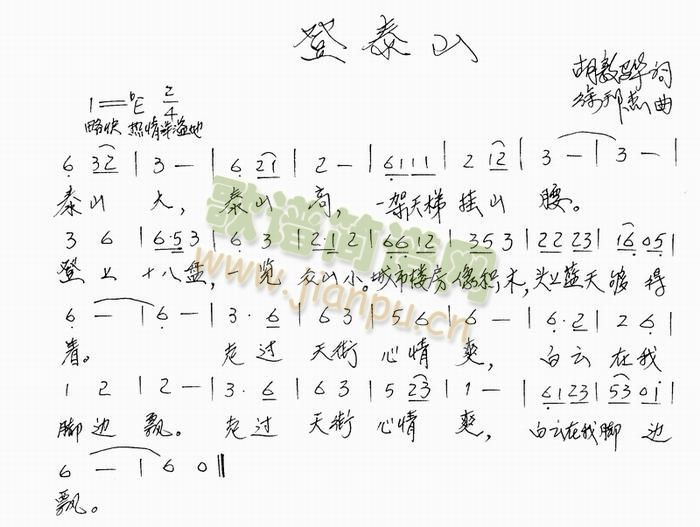 登泰山
胡敦骅词
徐邦杰曲
1=♭E 2/4
略快 热情洋溢地
6 32 | 3 — | 6 21 | 2 — | 6111 | 2 12 | 3 — | 3 — |
泰山 大， 泰山 高， 一架天梯 挂山 腰。
3 6 | 6·53 | 6· 3 | 2·12 | 6612 | 353 | 2223 | 1605 |
登上 十八盘，一览 众山小。城市楼房像积木，头上蓝天够得
6 — | 6 — | 3·6 | 63 | 56 | 6 — | 6·2 | 26 |
着。 走过 天街 心情 爽， 白云 在我
1 2 | 2 — | 3·6 | 63 | 5 23 | 1 — | 6123 | 5301 |
脚边 飘。 走过 天街 心情 爽， 白云在我脚 边
6 — | 6 0 ‖
飘。
歌谱简谱网
www.jianpu.cn